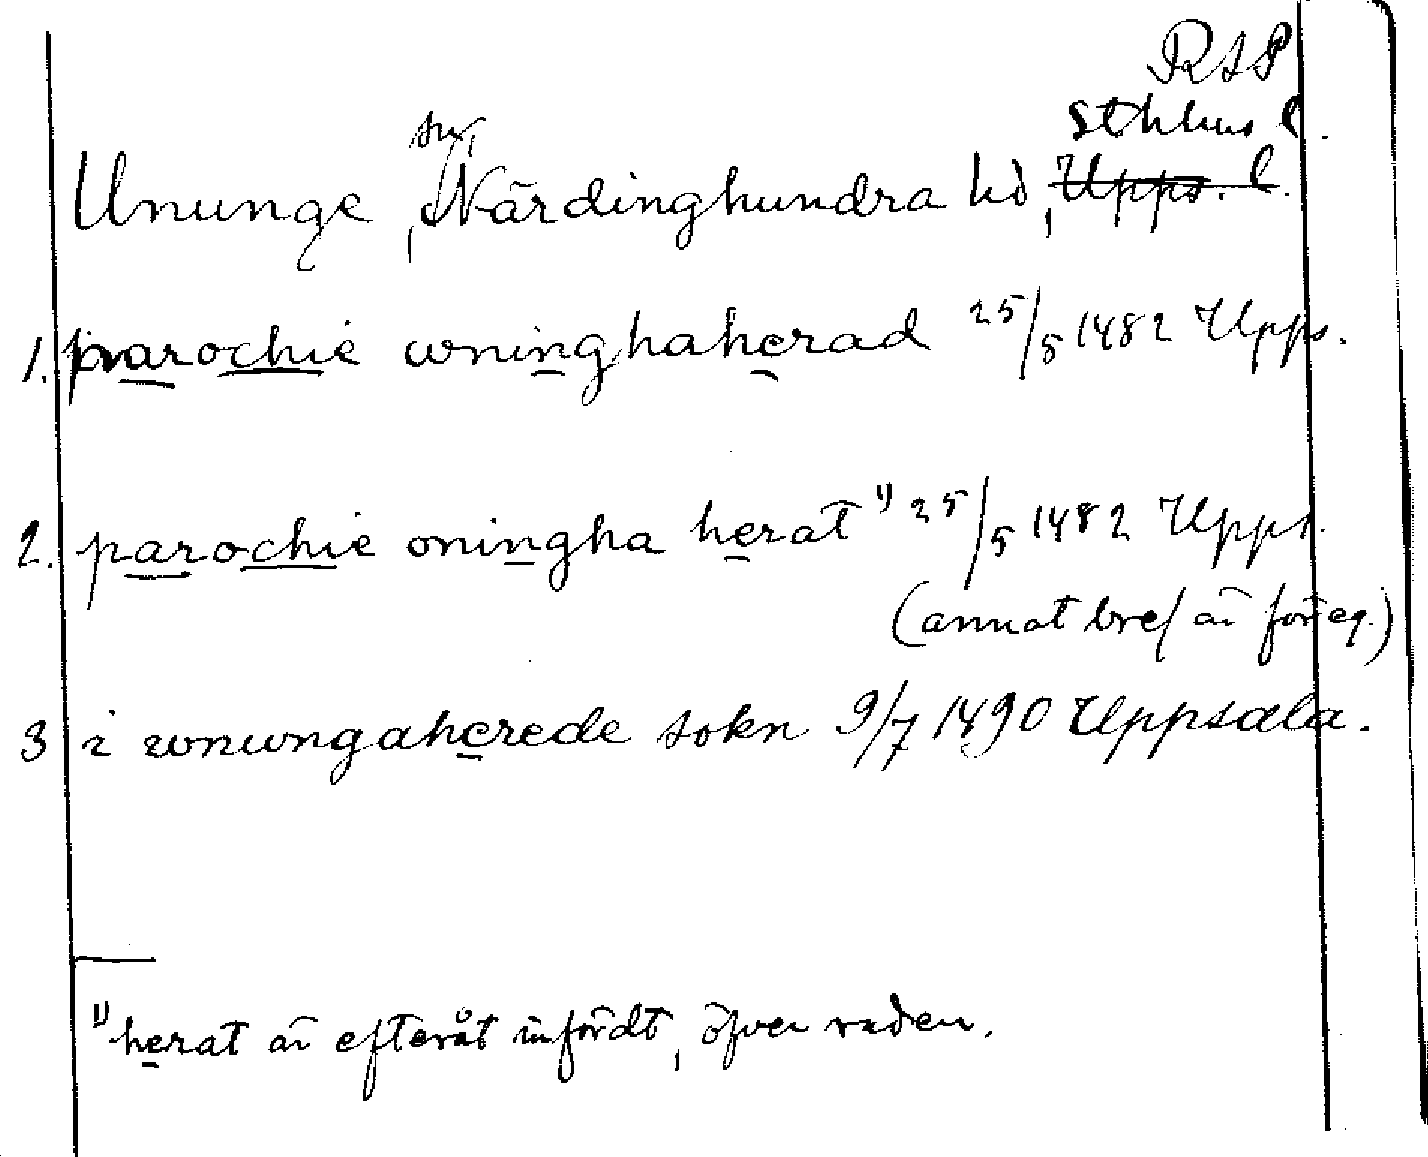 RAP
Sthlms l.
sn,
Ununge, Närdinghundra hd, Upps. l.
1. parochie wninghaherad 25/5 1482 Upps.
2. parochie oningha herat 1) 25/5 1482 Upps.
(annat bref än föreg.)
3 i wnungaherede sokn 9/7 1490 Uppsala.
1) herat är efteråt infördt, öfver raden.